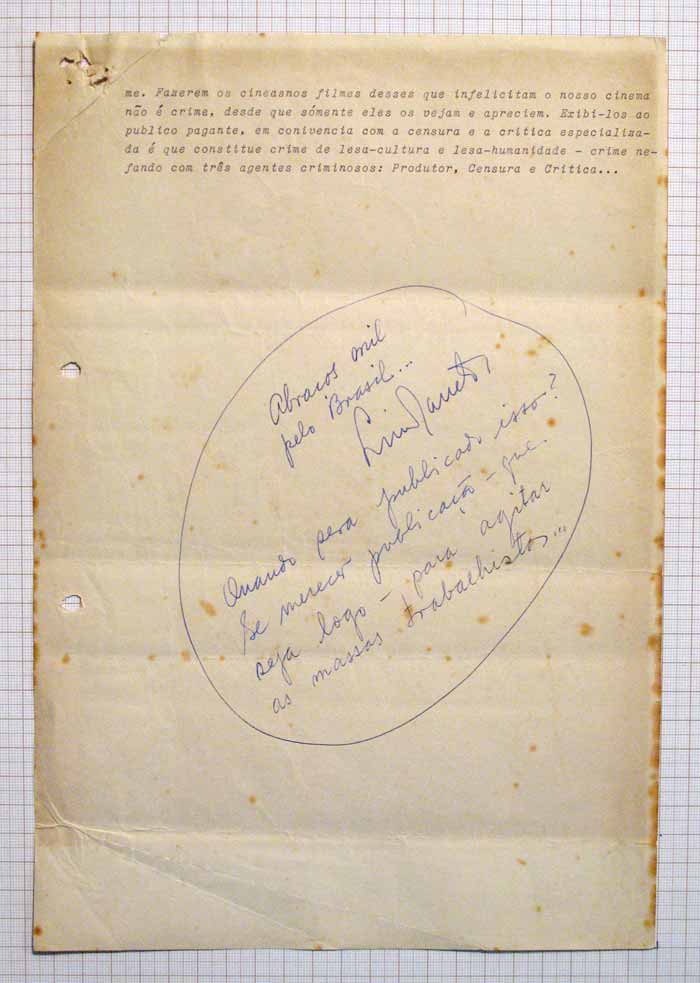 me. Fazerem os cineasnos filmes desses que infelicitam o nosso cinema
não é crime, desde que sómente eles os vejam e apreciem. Exibi-los ao
publico pagante, em conivencia com a censura e a critica especializa-
da é que constitue crime de lesa-cultura e lesa-humanidade - crime ne-
fando com três agentes criminosos: Produtor, Censura e Critica...
Abraços mil
pelo Brasil...
Quando pera publicado isso?
Se merecer publicação - que
seja logo - para agitar
as massas trabalhistas...